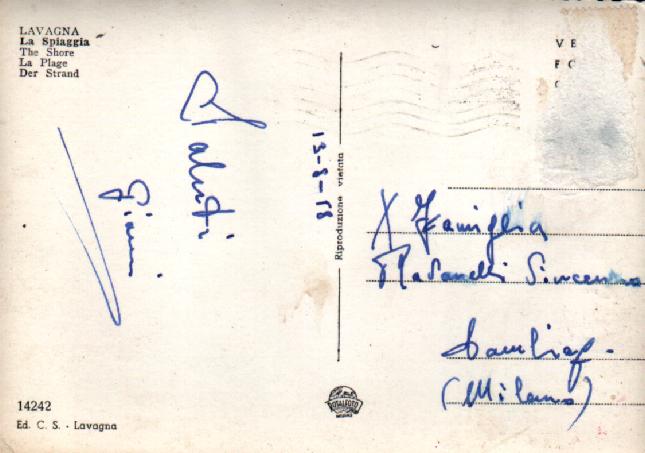 LAVAGNA
La Spiaggia
The Shore
La Plage
Der Strand
Saluti
Gianni
13-8-58
Riproduzione vietata
X Famiglia
(Milano)
14242
Ed. C. S. - Lavagna